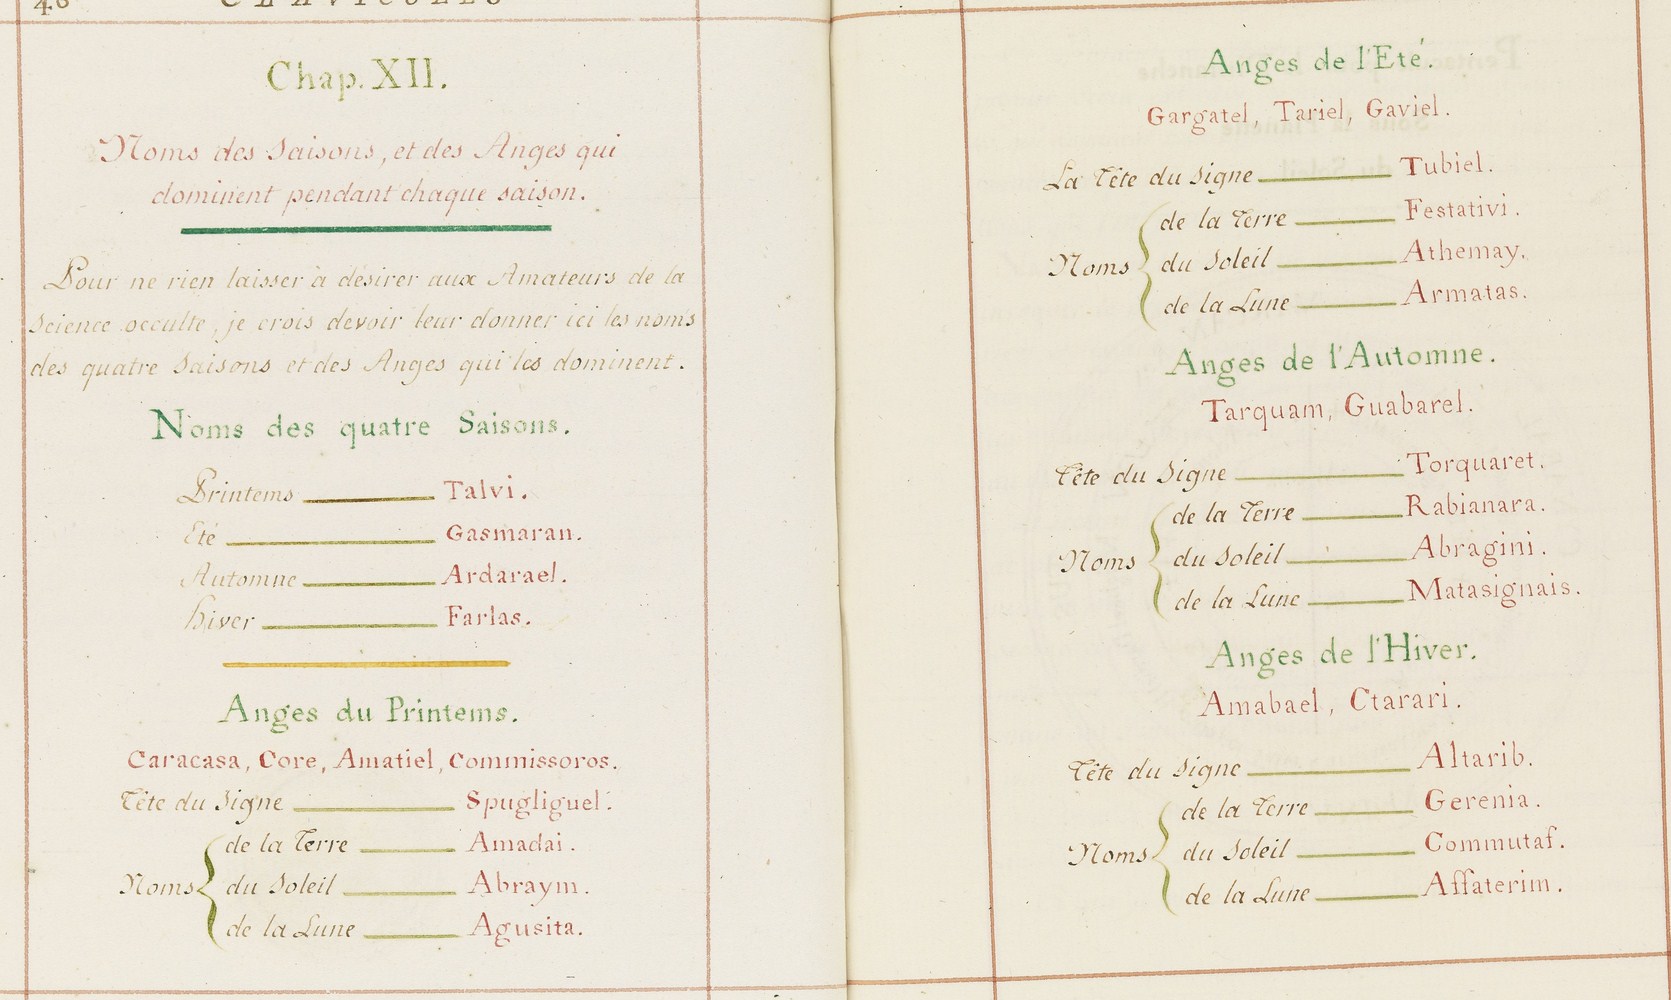 48 CLAVICULES
Chap. XII.
Noms des Saisons, et des Anges qui
dominent pendant chaque saison.
Pour ne rien laisser à désirer aux Amateurs de la
Science occulte, je crois devoir leur donner ici les noms
des quatre Saisons et des Anges qui les dominent.
Noms des quatre Saisons.
Printems Talvi.
Eté Gasmaran.
Automne Ardarael.
hiver Farlas.
Anges du Printems.
Caracasa, Core, Amatiel, Commissoros.
Tête du Signe Spugliguel.
Noms
de la Terre Amadai.
du Soleil Abraym.
de la Lune Agusita.
Anges de l'Eté.
Gargatel, Tariel, Gaviel.
La Tête du Signe Tubiel.
Noms
de la Terre Festativi.
du Soleil Athemay.
de la Lune Armatas.
Anges de l'Automne.
Tarquam, Guabarel.
Tête du Signe Torquaret.
Noms
de la Terre Rabianara.
du Soleil Abragini.
de la Lune Matasignais.
Anges de l'Hiver.
Amabael, Ctarari.
Tête du Signe Altarib.
Noms
de la Terre Gerenia.
du Soleil Commutaf.
de la Lune Affaterim.